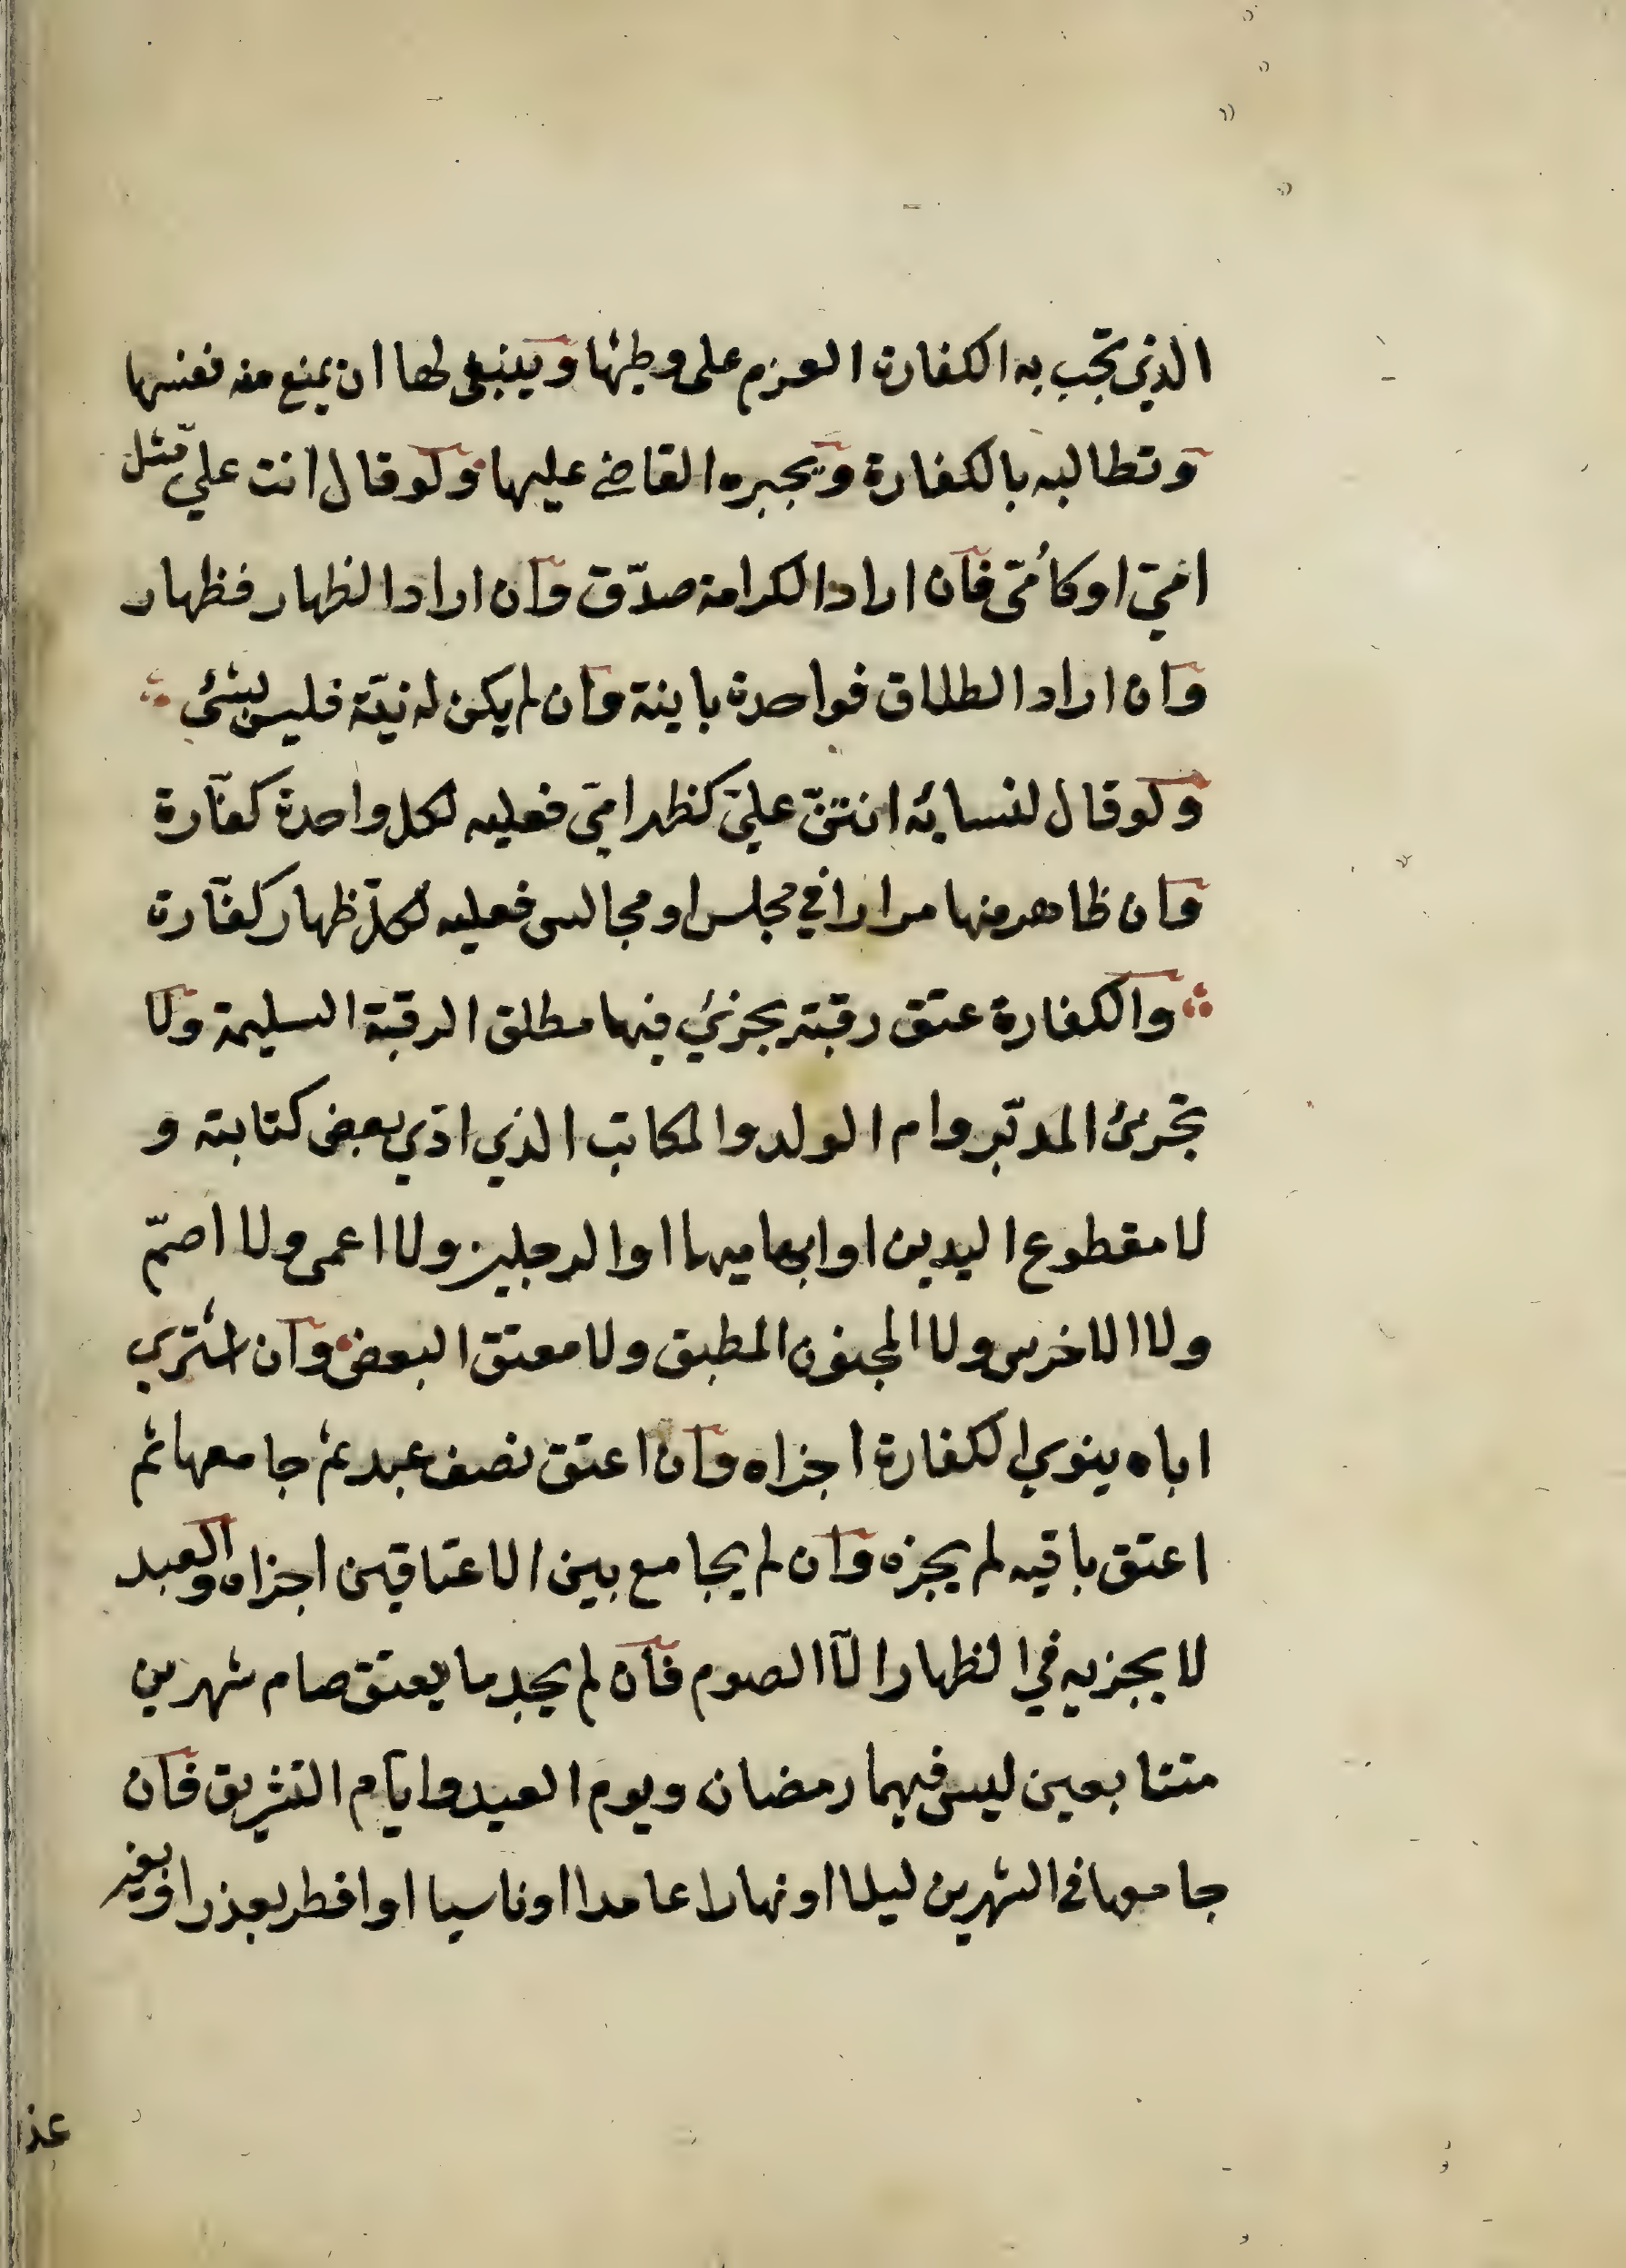 الذي تجب به الكفارة العزم على وطئها وينبغي لها ان يمنع منه نفسها
وتطالبه بالكفارة ويجبره القاضي عليها ولو قال انت عليّ مثل
اميّ او كأمّي فان اراد الكرامة صدّق وان اراد الظهار فظهار
وان اراد الطلاق فواحدة باينة وان لم يكن له نيّة فليس بشئ
ولو قال لنسائه انتنّ عليّ كظهر اميّ فعليه لكل واحدة كفّارة
وان ظاهر منها مرارا في مجلس او مجالس فعليه لكلّ ظهار كفّارة
والكفارة عتق رقبة يجزئ فيها مطلق الرقبة السليمة ولا
تجزئ المدبّر وام الولد والمكاتب الذي ادّي بعض كتابته و
لا مقطوع اليدين او ابهاميهما او الرجلين ولا اعمى ولا اصمّ
ولا الاخرس ولا المجنون المطبق ولا معتق البعض وان اشتري
اباه ينوي الكفارة اجزاه وان اعتق نصف عبد ثم جامعها ثم
اعتق باقيه لم يجزه وان لم يجامع بين الاعتاقين اجزاه والعبد
لا يجزيه في الظهار الّا الصوم فان لم يجد ما يعتق صام شهرين
متتابعين ليس فيهما رمضان ويوم العيد وايّام التشريق فان
جامعها في الشهرين ليلا او نهارا عامدا او ناسيا او افطر بعذر او بغير
عذر